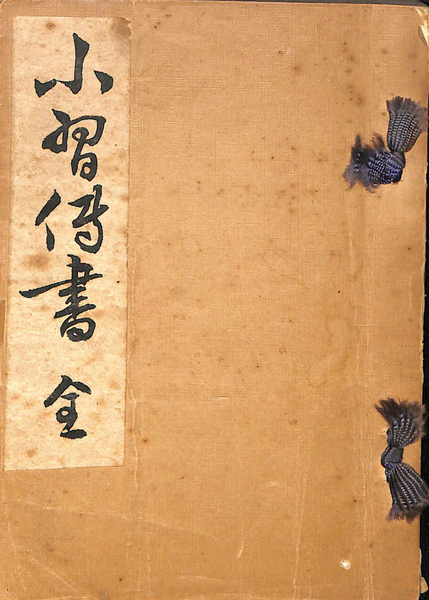 小習傳書 全